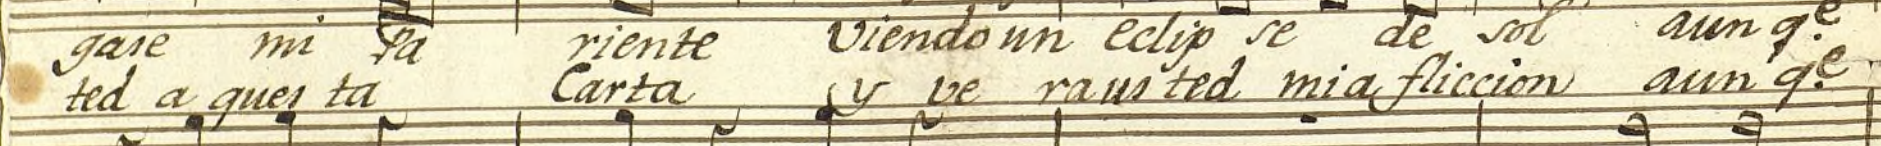 gase mi Pa riente viendo un eclip se de sol aun q.e
ted a ques ta Carta y ve raus ted mi a fliccion aun q.e